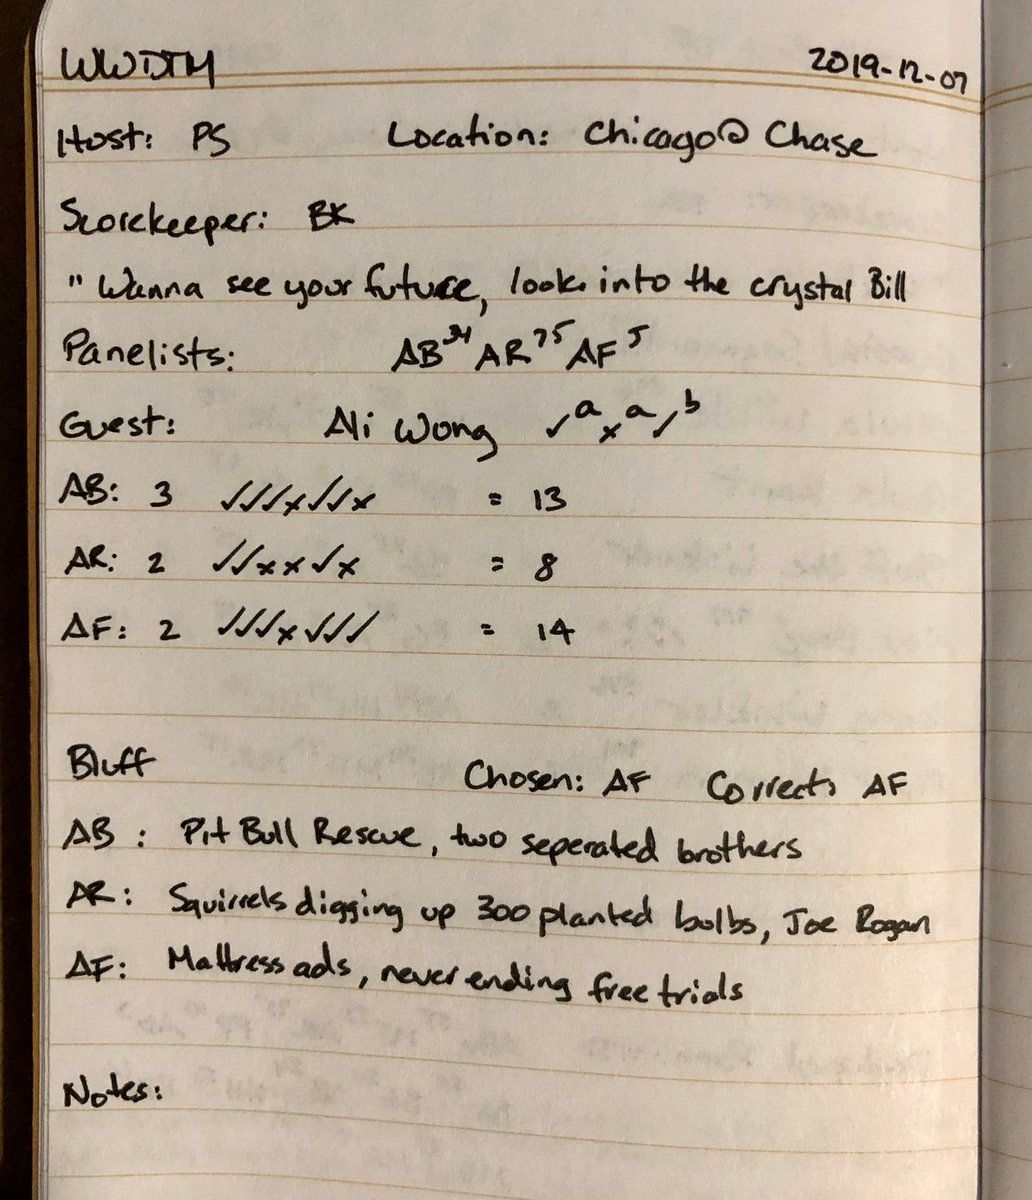 WWDTM 2019-12-07
Host: PS Location: Chicago @ Chase
Scorekeeper: BK
" Wanna see your future, look into the crystal Bill
Panelists: AB 34 AR 75 AF 5
Guest: Ali Wong ✓a ×a ✓b
AB: 3 ✓✓✓×✓✓× = 13
AR: 2 ✓✓××✓× = 8
AF: 2 ✓✓✓×✓✓✓ = 14
Bluff Chosen: AF Correct: AF
AB : Pit Bull Rescue, two seperated brothers
AR: Squirrels digging up 300 planted bulbs, Joe Rogan
AF: Mattress ads, never ending free trials
Notes: